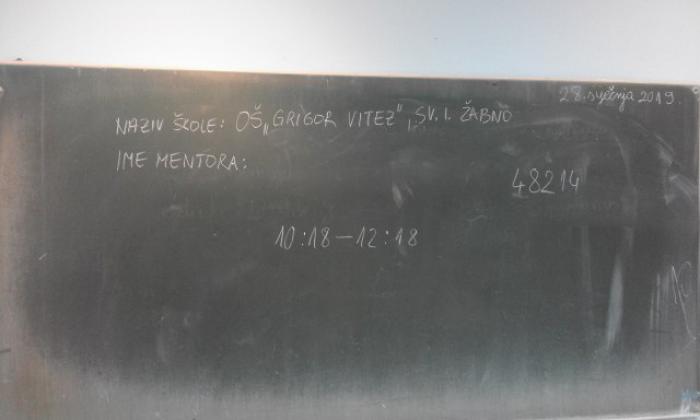 28. siječnja 2019.
NAZIV ŠKOLE: OŠ „GRIGOR VITEZ", SV. I. ŽABNO
IME MENTORA:
48214
10:18 – 12:18